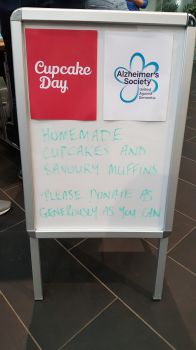 Cupcake
Day
Alzheimer's
Society
United
Against
Dementia
HOMEMADE
CUPCAKES AND
SAVOURY MUFFINS
PLEASE DONATE AS
GENEROUSLY AS YOU CAN